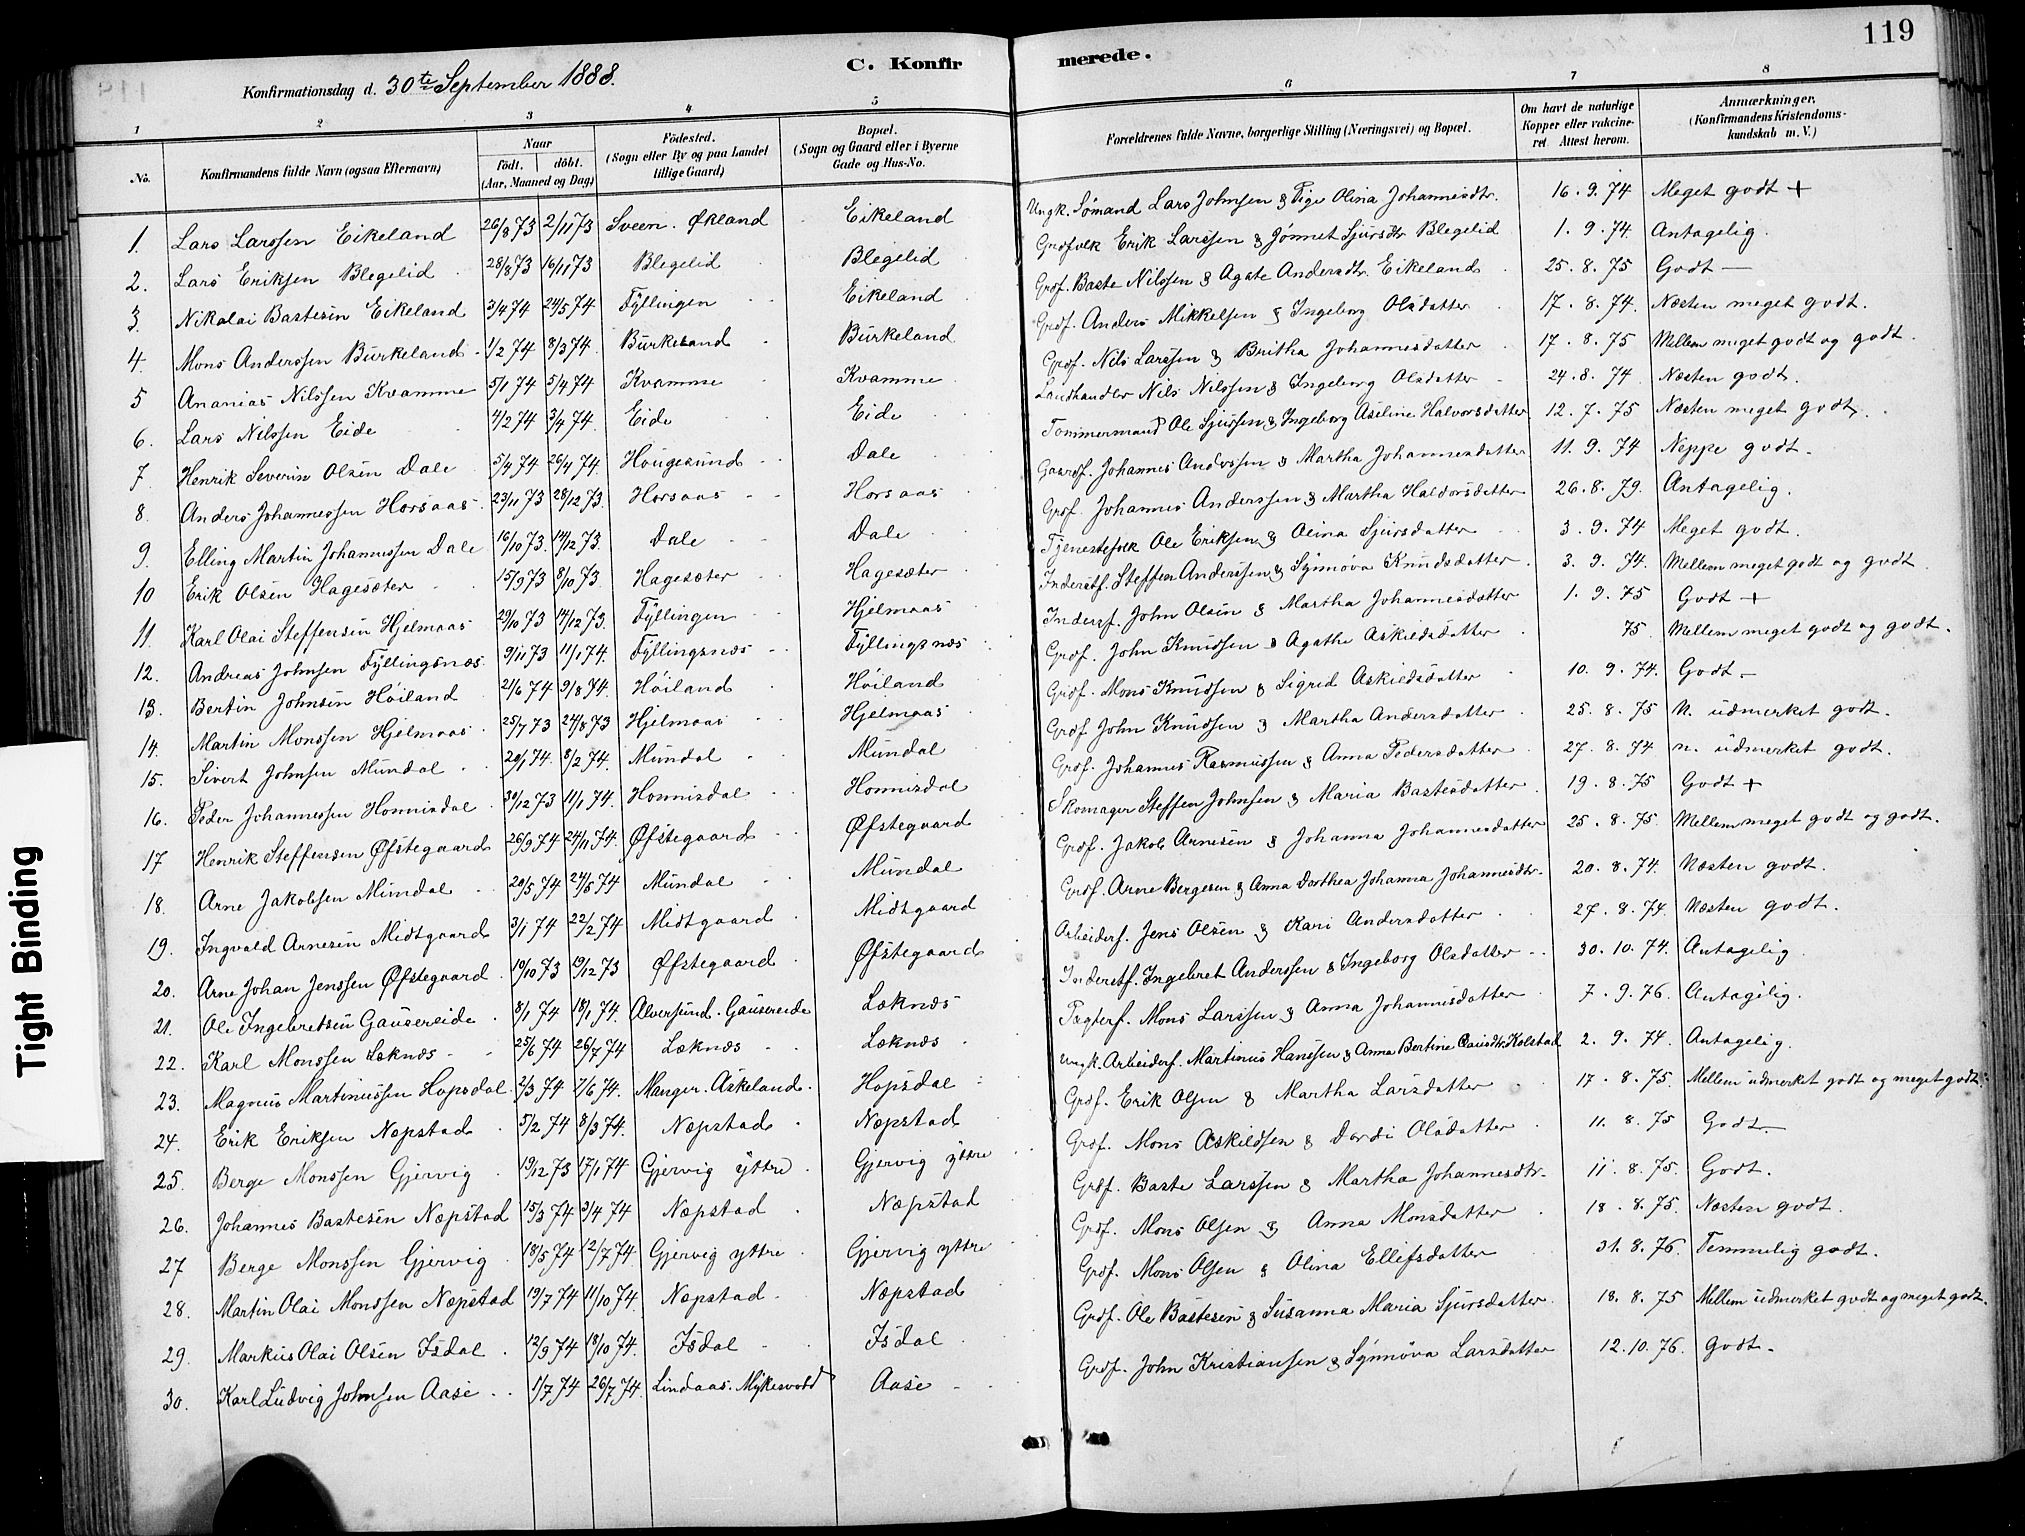 119
C. Konfirmerede.
Konfirmationsdag d. 30te September 1888.
1 2 3 4 5 6 7 8
No. Konfirmandens fulde Navn (ogsaa Efternavn) Naar födt. döbt. (Aar, Maaned og Dag) Födested. (Sogn eller By og paa Landet tillige Gaard) Bopæl. (Sogn og Gaard eller i Byerne Gade og Hus-No. Forældrenes fulde Navne, borgerlige Stilling (Næringsvei) og Bopæl. Om havt de naturlige Kopper eller vakcineret. Attest herom. Anmærkninger. (Konfirmandens Kristendomskundskab m. V.)
1. Lars Larssen Eikeland 26/8 73 2/11 73 Sveen. Økland Eikeland Ungk. Sømand Lars Johnsen & Pige Olina Johannesdtr. 16. 9. 74 Meget godt +
2. Lars Eriksen Blegelid 28/8 73 16/11 73 Blegelid Blegelid Grdfolk Erik Larssen & Jónnet Sjursdtr Blegelid 1. 9. 74. Antagelig.
3. Nikolai Bastesen Eikeland 3/4 74 24/5 74 Fyllingen Eikeland Grdf. Baste Nilssen & Agate Andersdtr. Eikeland 25. 8. 75 Godt –
4. Mons Anderssen Burkeland 1/2 74 8/3 74. Burkeland Burkeland Grdf. Anders Mikkelsen & Ingeborg Olsdatter 17. 8. 74. Næsten meget godt.
5 Ananias Nilssen Kvamme 5/1 74 5/4 74 Kvamme Kvamme Grdf. Nils Larssen & Britha Johannesdatter 17. 8. 75 Mellem meget godt og godt.
6. Lars Nilssen Eide 4/2 74 3/4 74. Eide Eide Landhandler Nils Nilssen & Ingeborg Olsdatter 24. 8. 74. Næsten godt.
7. Henrik Severin Olsen Dale 5/4 74 26/4 74. Hougesund Dale Tømmermand Ole Sjursen & Ingeborg Aseline Halvorsdatter 12. 7. 75 Næsten meget godt.
8. Anders Johannessen Horsaas 23/11 73 28/12 73. Horsaas Horsaas Gaardf. Johannes Anderssen & Martha Johannesdatter 11. 9. 74 Neppe godt.
9. Elling Martin Johannessen Dale 16/10 73. 14/12 73. Dale Dale Grdf. Johannes Anderssen & Martha Haldorsdatter 26. 8. 79. Antagelig.
10 Erik Olsen Hagesæter 15/9 73 8/10 73. Hagesæter Hagesæter Tjenestefolk Ole Eriksen & Olina Sjursdatter 3. 9. 74 Meget godt.
11. Karl Olai Steffensen Hjelmaas 29/10 73 14/12 73. Fyllingen Hjelmaas Inderstf. Steffen Anderssen & Synnøva Knudsdatter 3. 9. 74. Mellem meget godt og godt.
12. Andreas Johnsen Fyllingsnæs 9/11 73 11/1 74. Fyllingsnæs Fyllingsnæs Indersf. John Olsen & Martha Johannesdatter 1. 9. 75 Godt +
13. Bertin Johnsen Höiland 21/6 74 9/8 74. Höiland Höiland Grdf. John Knudsen & Agathe Askildsdatter 75. Mellem meget godt og godt.
14. Martin Monssen Hjelmaas 25/7 73 24/8 73 Hjelmaas Hjelmaas Grdf. Mons Knudsen & Sigrid Askildsdatter 10. 9. 74. Godt –
15. Sivert Johnsen Mundal 20/1 74. 8/2 74. Mundal Mundal Grdf John Knudsen & Martha Andersdatter 25. 8. 75 N. udmerket godt.
16. Peder Johannessen Honnisdal 30/12 73 11/1 74. Honnisdal Honnisdal Grdf. Johannes Rasmussen & Anna Pedersdatter 27. 8. 74 n. udmerket godt.
17 Henrik Steffensen Øfstegaard 26/9 74 24/11 74. Øfstegaard Øfstegaard Skomager Steffen Johnsen & Maria Bastesdatter 19. 8. 75 Godt +
18. Arne Jakobsen Mundal 20/5 74 24/5 74 Mundal Mundal Grdf. Jakob Arnesen & Johanna Johannesdatter 25. 8. 75. Mellem meget godt og godt.
19. Ingvald Arnesen Midtgaard 3/1 74 22/2 74 Midtgaard Midtgaard Grdf. Arne Bergesen & Anna Dorthea Johanna Johannesdtr. 20. 8. 74. Næsten godt.
20. Arne Johan Jenssen Øfstegaard 19/10 73 19/12 73 Øfstegaard Øfstegaard Arbeiderf. Jens Olsen & Kari Andersdatter 27. 8. 74. Næsten godt.
21. Ole Ingebretsen Gausereide 8/1 74 18/1 74. Alversund. Gausereide Løknæs Inderstf. Ingebret Anderssen & Ingeborg Olsdatter 30. 10. 74. Antagelig.
22. Karl Monssen Løknæs 25/6 74 26/7 74 Løknæs Løknæs Pagterf. Mons Larssen & Anna Johannesdatter 7. 9. 76. Antagelig.
23. Magnus Martinussen Hopsdal 2/3 74 7/6 74. Manger. Askeland Hopsdal Ungk. Arbeiderf. Martinus Hanssen & Anna Bertine Kolstad 2. 9. 74. Antagelig.
24. Erik Eriksen Nøpstad 5/2 74 8/3 74. Nøpstad Nøpstad Grdf. Erik Olsen & Martha Larsdatter 17. 8. 75. Mellem udmerket godt og meget godt.
25. Berge Monssen Gjervig 19/12 73 17/1 74 Gjervig yttre Gjervig yttre Grdf. Mons Askildsen & Dordi Olsdatter 11. 8. 75 Godt –
26. Johannes Bastesen Nøpstad 15/3 74 3/4 74 Nøpstad Nøpstad Grdf. Baste Larssen & Martha Johannesdtr. 11. 8. 75. Godt.
27 Berge Monssen Gjervig 18/5 74 12/7 74. Gjervig yttre Gjervig yttre Grdf. Mons Olsen & Anna Monsdatter 18. 8. 75. Næsten godt.
28. Martin Olai Monssen Nøpstad 19/7 74 11/10 74. Nøpstad Nøpstad Grdf. Mons Olsen & Olina Ellefsdatter 31. 8. 76. Temmelig godt.
29. Markus Olai Olsen Isdal 12/9 74 18/10 74. Isdal Isdal Grdf. Ole Bastesen & Susanna Maria Sjursdatter 18. 8. 75 Mellem udmerket godt og meget godt.
30. Karl Ludvig Johnsen Aase 1/7 74 26/7 74. Lindaas. Mykesvold Aase Grdf. John Kristiansen & Synnøva Larsdatter 12. 10. 76. Godt.
Tight Binding